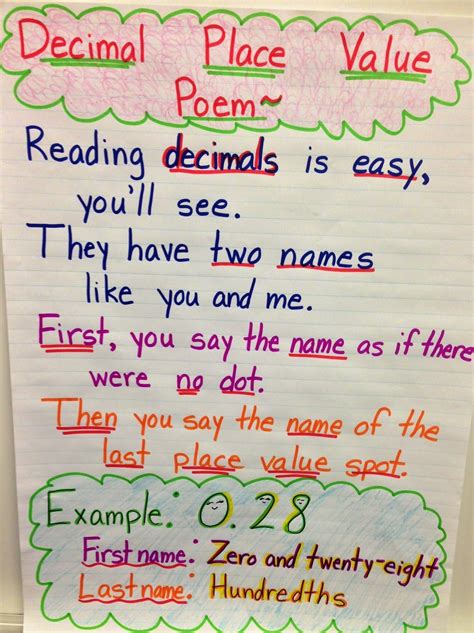 Decimal Place Value
Poem~
Reading decimals is easy,
you'll see.
They have two names
like you and me.
First, you say the name as if there
were no dot.
Then you say the name of the
last place value spot.
Example: 0.28
First name: Zero and twenty-eight
Last name: Hundredths